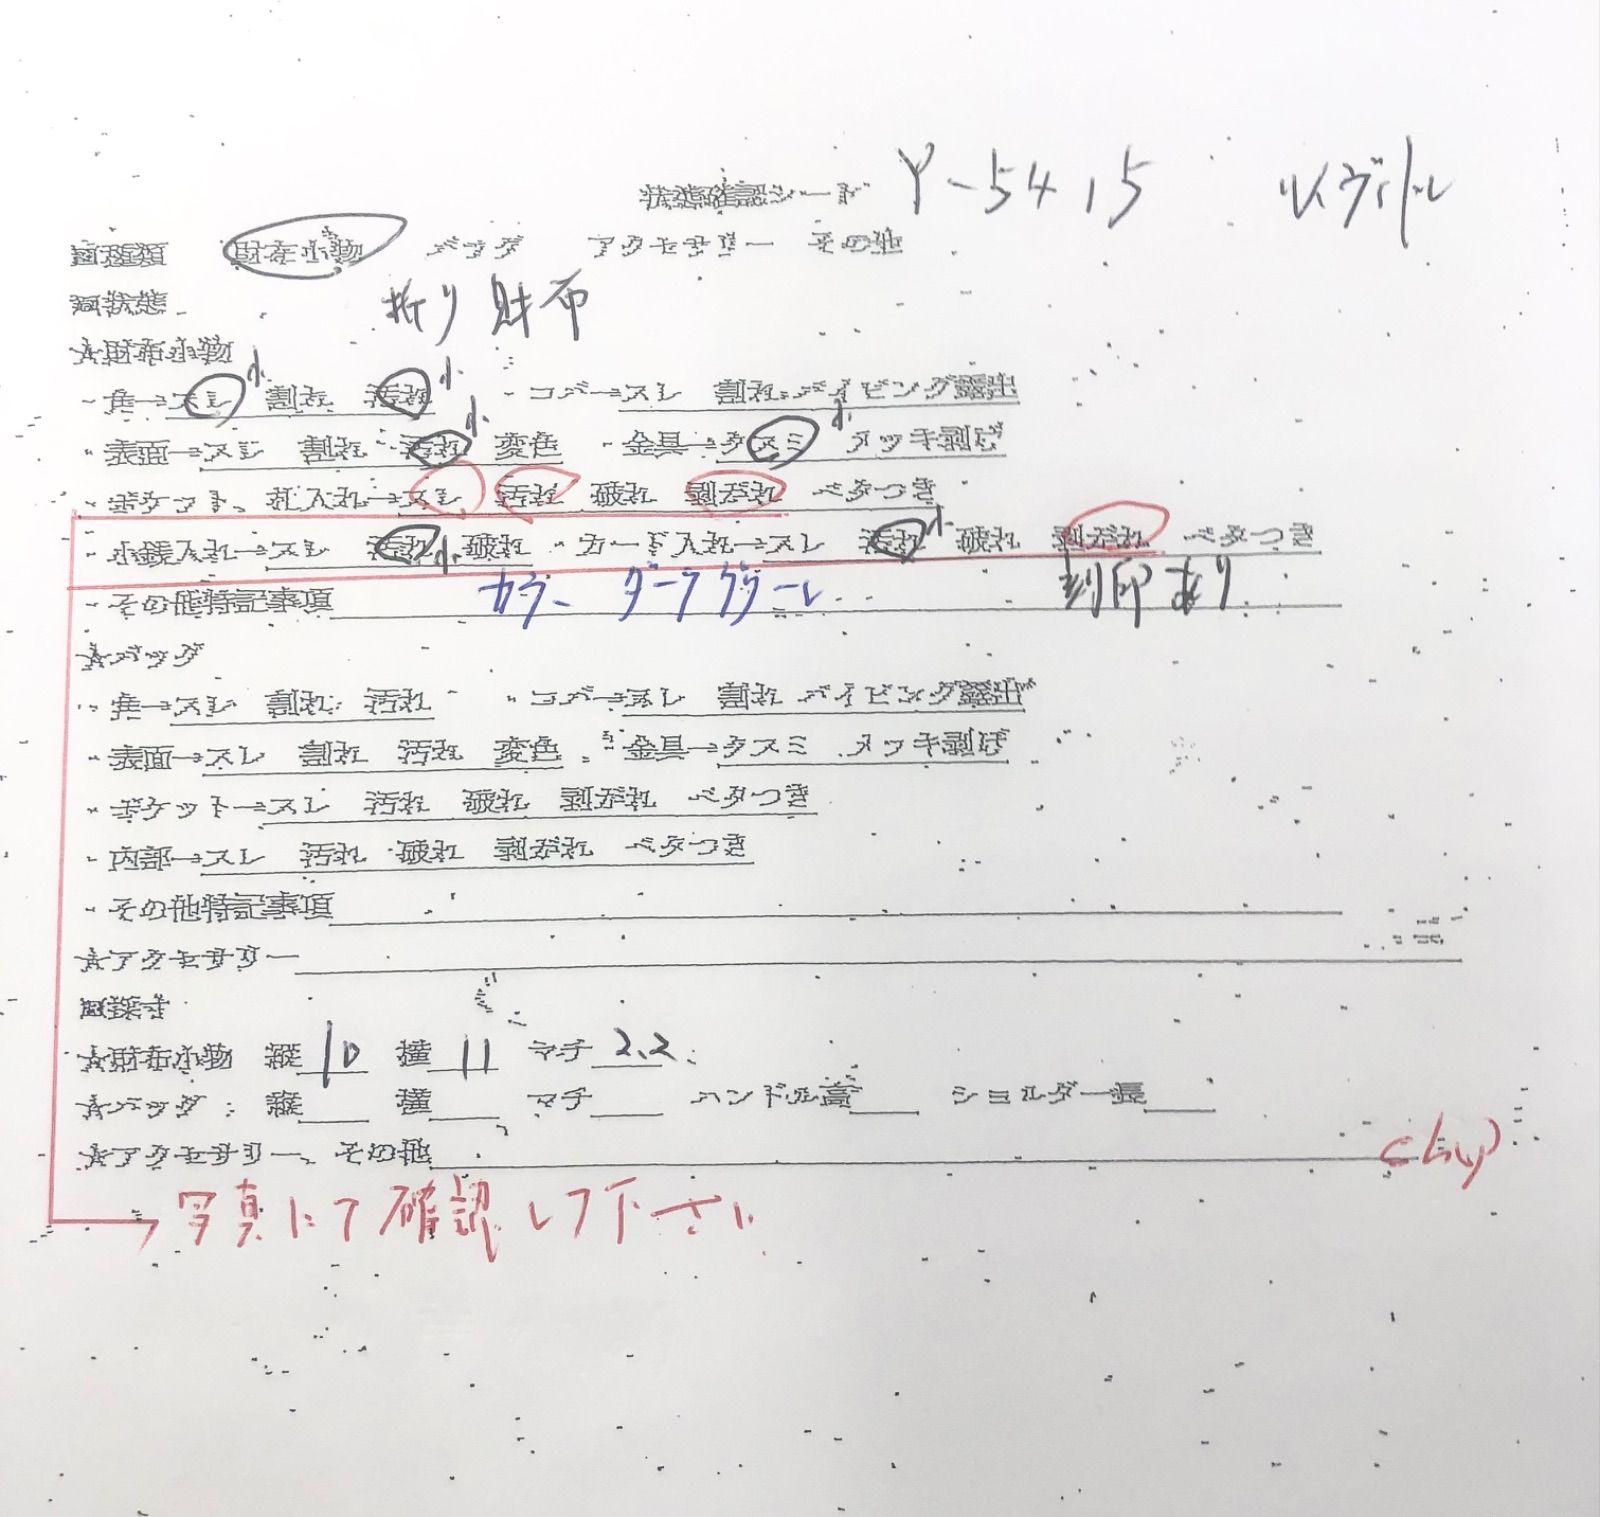 状態確認シート Y-5415 ルイヴィトン
種類 財布小物 バッグ アクセサリー その他
状態 折り財布
★財布小物
・角→スレ 小 割れ 汚れ 小 ・コバ→スレ 割れ パイピング露出
・表面→スレ 割れ 汚れ 小 変色 ・金具→クスミ 小 メッキ剥げ
・ポケット、札入れ→スレ 汚れ 破れ 剥がれ ベタつき
・小銭入れ→スレ 汚れ 小 破れ ・カード入れ→スレ 汚れ 小 破れ 剥がれ ベタつき
・その他特記事項 カラー 刻印あり
★バッグ
・角→スレ 割れ 汚れ ・コバ→スレ 割れ パイピング露出
・表面→スレ 割れ 汚れ 変色 ・金具→クスミ メッキ剥げ
・ポケット→スレ 汚れ 破れ 剥がれ ベタつき
・内部→スレ 汚れ 破れ 剥がれ ベタつき
・その他特記事項
★アクセサリー
採寸
★財布小物 縦 10 横 11 マチ 2.2
★バッグ 縦 横 マチ ハンドル高 ショルダー長
★アクセサリー、その他
写真にて確認して下さい